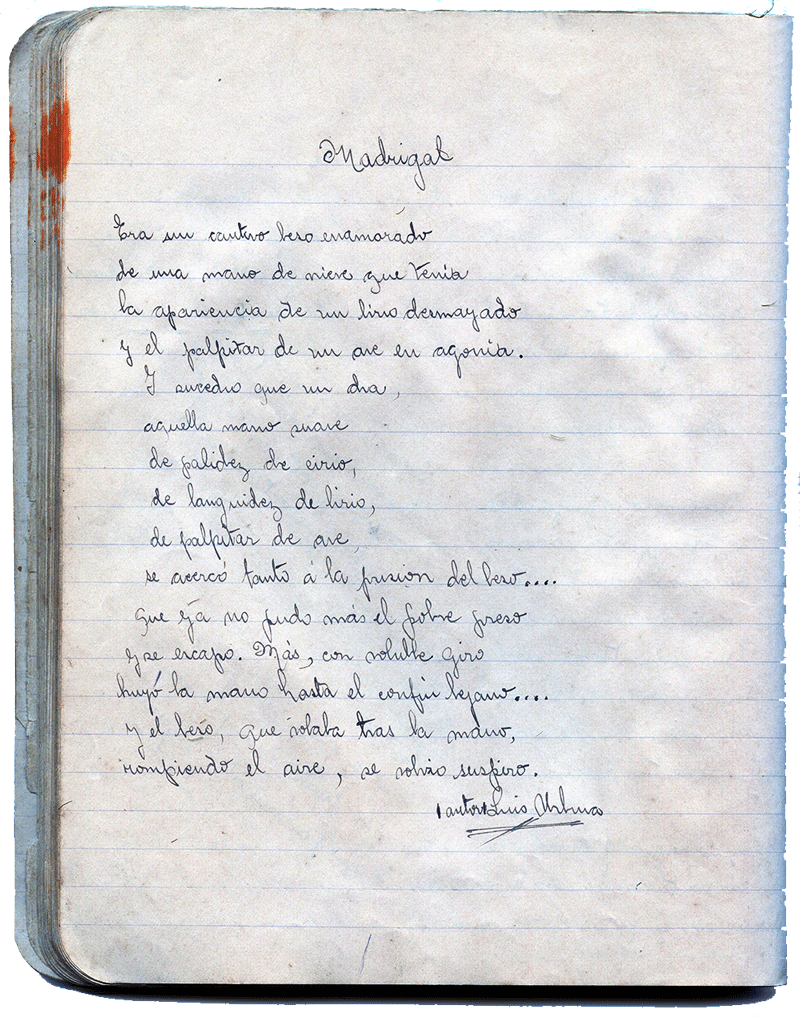 Madrigal
Era un cautivo beso enamorado
de una mano de nieve que tenía
la apariencia de un lirio desmayado
y el palpitar de un ave en agonía.
Y sucedio que un dia,
aquella mano suave
de palidez de cirio,
de languidez de lirio,
de palpitar de ave,
se acercó tanto á la prision del beso....
que yá no pudo más el pobre preso
y se escapo. Más, con voluble giro
huyó la mano hasta el confin lejano....
y el beso, que volaba tras la mano,
rompiendo el aire, se volvio suspiro.
autor Luis Urbina